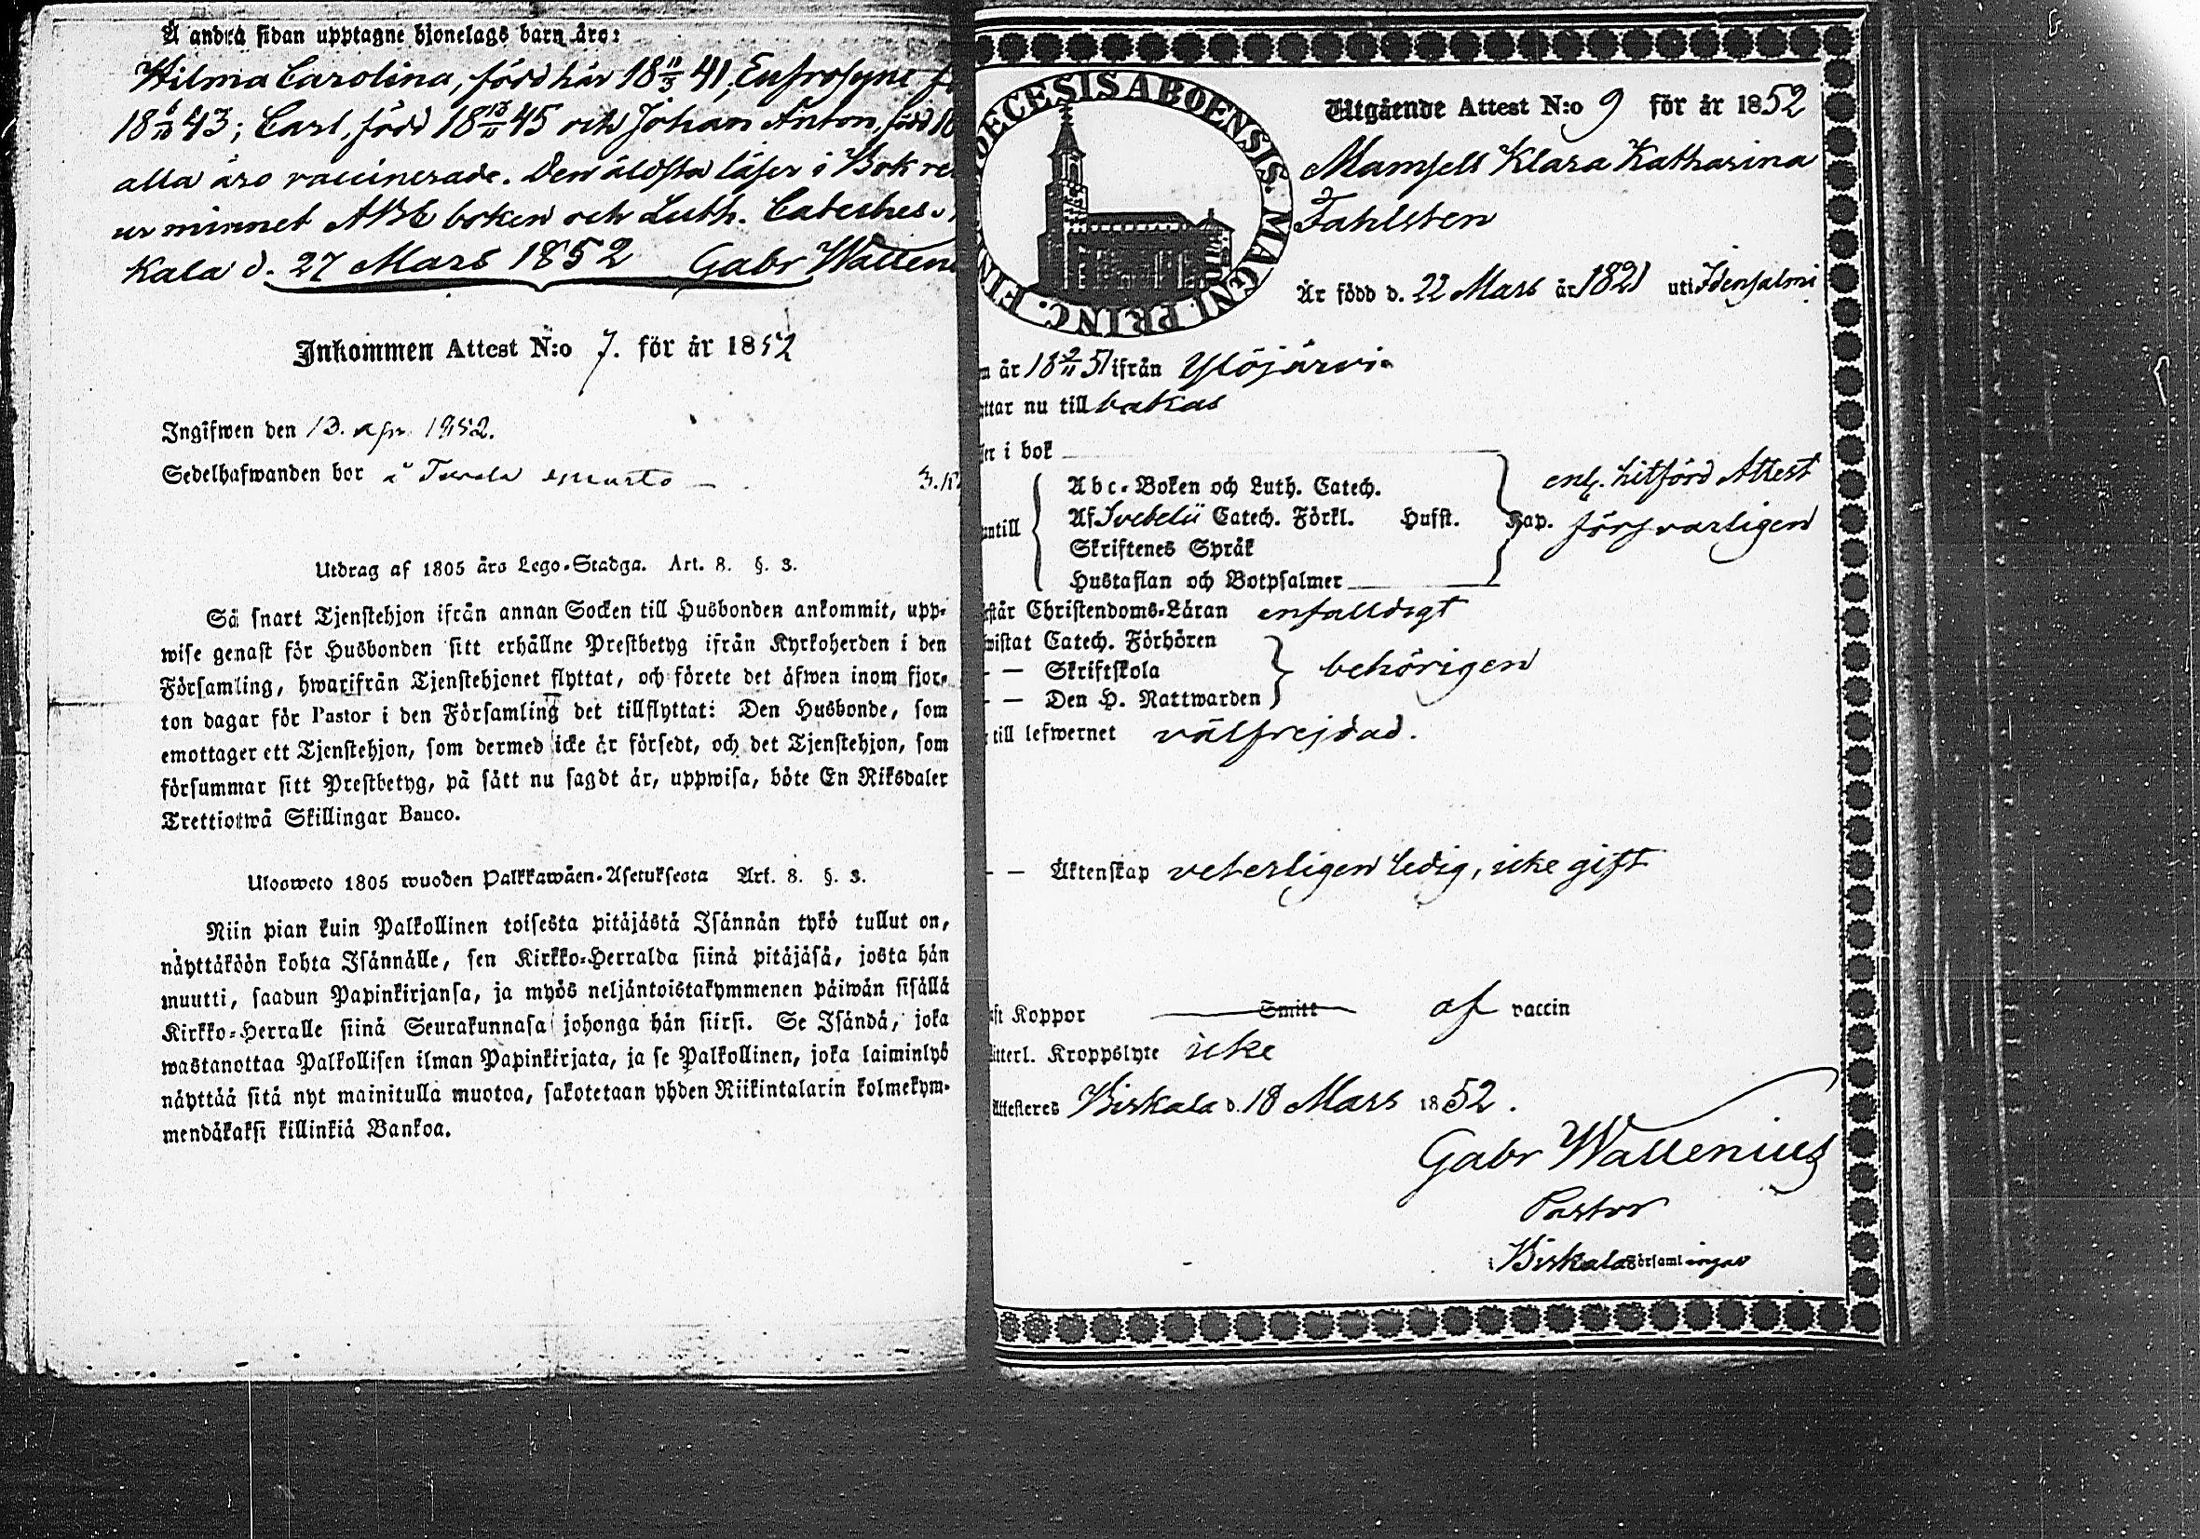 Å andra sidan upptagne hjonelags barn äro:
Wilma Carolina, född här 18 11/3 41; Eufrosyne
18 6/10 43; Carl, född 18 13/11 45 och Johan Anton, född 18
alla äro vaccinerade. Den äldsta läser i Bok
ur minnet ABC boken och Luth. Cateches.
Kala d. 27 Mars 1852 Gabr Wallen
Inkommen Attest N:o 7. för år 1852
Ingifwen den 13. apr. 1852.
Sedelhafwanden bor å
Utdrag af 1805 års Lego-Stadga. Art. 8. §. 3.
Så snart Tjenstehjon ifrån annan Socken till Husbonden ankommit, upp-
wise genast för Husbonden sitt erhållne Prestbetyg ifrån Kyrkoherden i den
Församling, hwarifrån Tjenstehjonet flyttat, och förete det äfwen inom fjor-
ton dagar för Pastor i den Församling det tillflyttat: Den Husbonde, som
emottager ett Tjenstehjon, som dermed icke är försedt, och det Tjenstehjon, som
försummar sitt Prestbetyg, på sätt nu sagdt är, uppwisa, böte En Riksdaler
Trettiotwå Skillingar Banco.
Ulosweto 1805 wuoden Palkkawäen-Asetuksesta Art. 8. §. 3.
Niin pian kuin Palkollinen toisesta pitäjästä Isännän tykö tullut on,
näyttäköön kohta Isännälle, sen Kirkko-Herralda siinä pitäjäsä, josta hän
muutti, saadun Papinkirjansa, ja myös neljäntoistakymmenen päiwän sisällä
Kirkko-Herralle siinä Seurakunnasa johonga hän siirsi. Se Isändä, joka
wastanottaa Palkollisen ilman Papinkirjata, ja se Palkollinen, joka laiminlyö
näyttää sitä nyt mainitulla muotoa, sakotetaan yhden Riikintalarin kolmekym-
mendäkaksi killinkiä Bankoa.
OECESIS ABOENSIS. MAGNI PRINC. FIN
Utgående Attest N:o 9 för år 1852
Mamsell Klara Katharina
Fahlsten
Är född d. 22 Mars år 1821 uti Idensalmi
år 18 2/11 51 ifrån Ylöjärvi
ttar nu till bakas
i bok
Abc-Boken och Luth. Catech.
Af Svebelii Catech. Förkl. Husst. Kap.
Skriftenes Språk
Hustaflan och Botpsalmer
antill
enl. hitförd Attest
försvarligen
står Christendoms-Läran enfalldigt
wistat Catech. Förhören
— — Skriftskola
— — Den H. Nattwarden
behörigen
till lefwernet välfrejdad.
— — Äktenskap veterligen ledig, icke gift
Koppor Smitt af vaccin
tterl. Kroppslyte icke
Attesteres Birkala d. 18 Mars 1852.
Gabr Wallenius
Pastor
i Birkala Församlingar